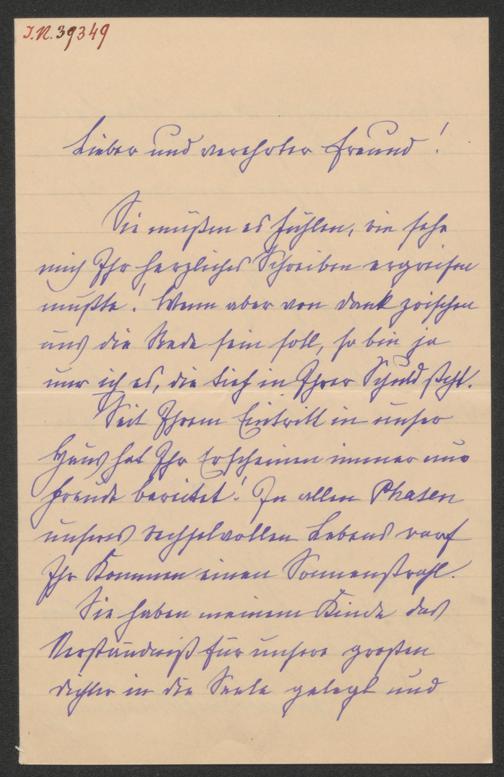 I.N. 39349
Lieber und verehrter Freund!
Sie müßen es fühlen, wie sehr
mich Ihr herzliches Schreiben ergreifen
mußte! Wenn aber von Dank zwischen
uns die Rede sein soll, so bin ja
nur ich es, die tief in Ihrer Schuld steht.
Seit Ihrem Eintritt in unser
Haus hat Ihr Erscheinen immer nur
Freude bereitet! In allen Phasen
unseres wechselvollen Lebens warf
Ihr Kommen einen Sonnenstrahl.
Sie haben meinem Kinde das
Verständniß für unsere großen
Dichter in die Seele gelegt und